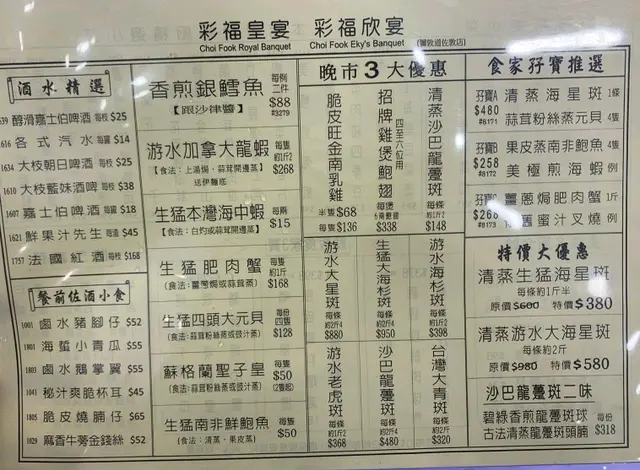 彩福皇宴
Choi Fook Royal Banquet
彩福欣宴
Choi Fook Eky's Banquet
(彌敦道佐敦店)
酒水精選
1639 醇滑嘉士伯啤酒 每枝 $25
1616 各式汽水 每罐 $14
1634 大枝朝日啤酒 每枝 $25
1610 大枝藍妹酒啤 每枝 $38
1607 嘉士伯啤酒 每罐 $18
1621 鮮果汁先生 每壺 $45
1757 法國紅酒 每枝 $168
餐前佐酒小食
1001 鹵水豬腳仔 $52
1801 海蜇小青瓜 $55
1803 鹵水鵝掌翼 $55
1041 秘汁爽脆杯耳 $45
1805 脆皮燒腩仔 $65
1029 麻香牛蒡金錢絲 $52
香煎銀鱈魚
【跟沙律醬】
每例
二件
$88
#3279
游水加拿大龍蝦
【食法：上湯焗、蒜茸開邊蒸】
送伊麵底
每隻
約1斤2
$268
生猛本灣海中蝦
【食法：白灼或蒜茸開邊蒸】
每両
$15
生猛肥肉蟹
(食法：薑蔥焗或蒜茸蒸)
每隻
約1斤
$168
生猛四頭大元貝
(食法：蒜茸粉絲蒸或豉汁蒸)
每份
四隻
$128
蘇格蘭聖子皇
(食法：蒜茸粉絲蒸或豉汁蒸)
每隻
$50
(2隻起)
生猛南非鮮鮑魚
(食法：清蒸、果皮蒸)
每隻
$50
晚市3大優惠
脆皮旺金南乳雞
半隻 $68
每隻 $136
招牌雞煲鮑翅
四至六位用
每煲
6両鮑翅
$338
清蒸沙巴龍躉斑
每條
約1斤2
$148
游水大海星斑
每條
約2斤4
$880
生猛大海杉斑
每條
約2斤4
$950
游水海杉斑
每條
約1斤2
$398
游水老虎斑
每條
約1斤2
$368
沙巴龍躉斑
每條
約2斤4
$480
台灣大青斑
每條
約1斤2
$320
食家孖寶推選
孖寶A
$480
#8171
清蒸海星斑 1條
蒜茸粉絲蒸元貝 4隻
$258
#8172
果皮蒸南非鮑魚 4隻
美極煎海蝦 例
$268
#8173
薑蔥焗肥肉蟹 1斤
舊蜜汁叉燒 例
特價大優惠
清蒸生猛海星斑
每條約1斤半
原價 $600 特價 $380
清蒸游水大海星斑
每條約2斤
原價 $980 特價 $580
沙巴龍躉斑二味
碧綠香煎龍躉斑球
古法清蒸龍躉斑頭腩
每份
$318